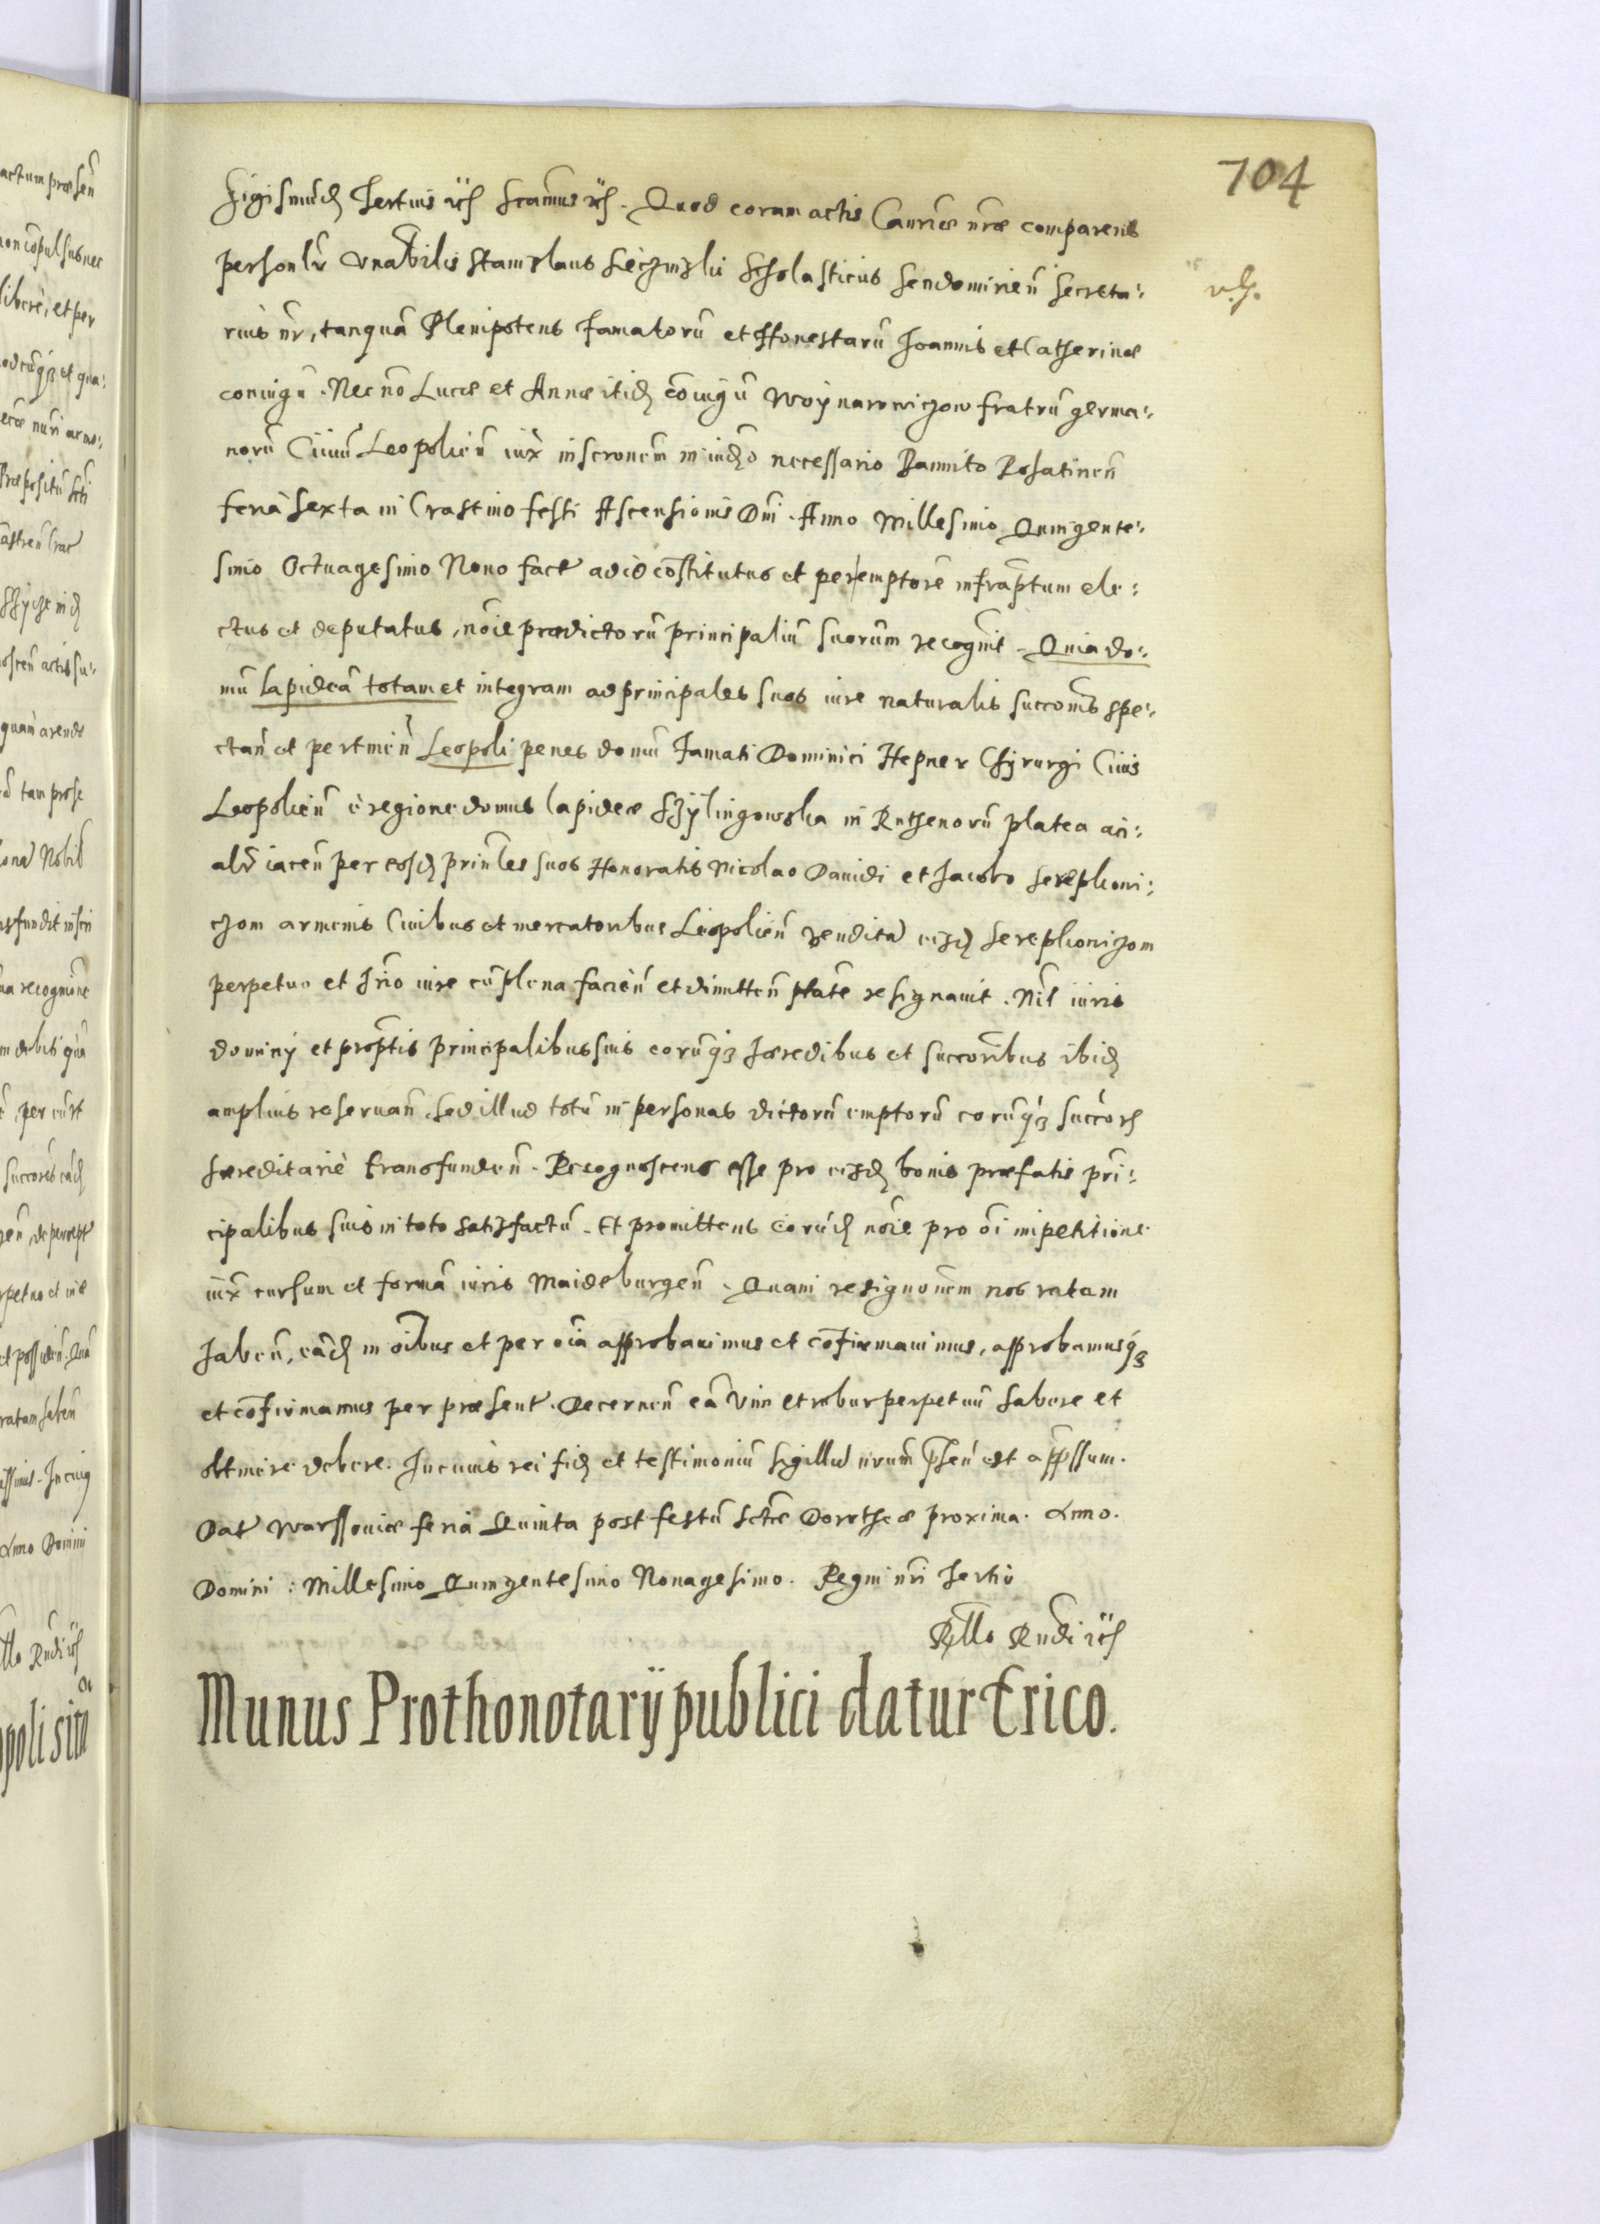 704
Sigismūd Tertius etc Scāmus etc. Quod coram actis Canriæ nræ comparens
personlr Vnabilis Stanislaus Scholasticus Sendomirien̄ Secreta:
rius nr, tanquā Plenipotens Famatorū et Honestarū Joannis et Catherinæ
coniugū. Nec no Lucæ et Annæ itid cōiugū Woynarowiczow fratrū germa:
norū Ciuiū Leopolien̄ iux inscronem in iudo necessario Bannito Rohatinen̄
feria sexta in Crastino festi Ascensionis Dni. Anno Millesimo Quingente:
simo Octuagesimo Nono fact ad id cōstitutus et peremptore infraptum ele:
ctus et deputatus, noīe prædictorū principaliū suorum recognit. Quia do:
mū lapideā totam et integram ad principales suos iure naturalis succonis spe:
ctan̄ et pertinen̄ Leopoli penes domū Famati Dominici Hepner Chyrurgi Ciuis
Leopolien̄ è regione domus lapideæ Szylingowska in Ruthenorū platea aci:
alr iacen̄ per eosd prinles suos Honoratis Nicolao Dauidi et Jacobo Serephowi:
czom armenis Ciuibus et mercatoribus Leopolien̄ vendita eisd Serephowiczom
perpetuo et hrio iure cū plena facien̄ et dimitten̄ ptate resignauit. Nil iuris
dominij et proptis principalibus suis eorūq3 hæredibus et succoribus ibid
amplius reseruan̄. Sed illud totū in personas dictorū emptorū eorūq3 succorū
hæreditariè transfunden̄. Recognoscens esse pro eisd bonis præfatis prin:
cipalibus suis in toto satisfactū. Et promittens eorūd noīe pro oī impetitione
iux cursum et formā iuris Maideburgen̄. Quam resignonem nos ratam
haben̄, eād in oībus et per oīa approbauimus et cōfirmauimus, approbamusq3
et cōfirmamus per præsent. Decernen̄ eā vim et robur perpetuū habere et
obtinere debere. In cuius rei fid et testimoniū sigillū nrum pn̄ est appssum.
Dat Warssouiæ feria Quinta post festū Sctæ Dorotheæ proxima. Anno.
Domini: Millesimo Quingentesimo Nonagesimo. Regni nri Tertio
Rllo Rndi etc
Munus Prothonotarij publici datur Erico.